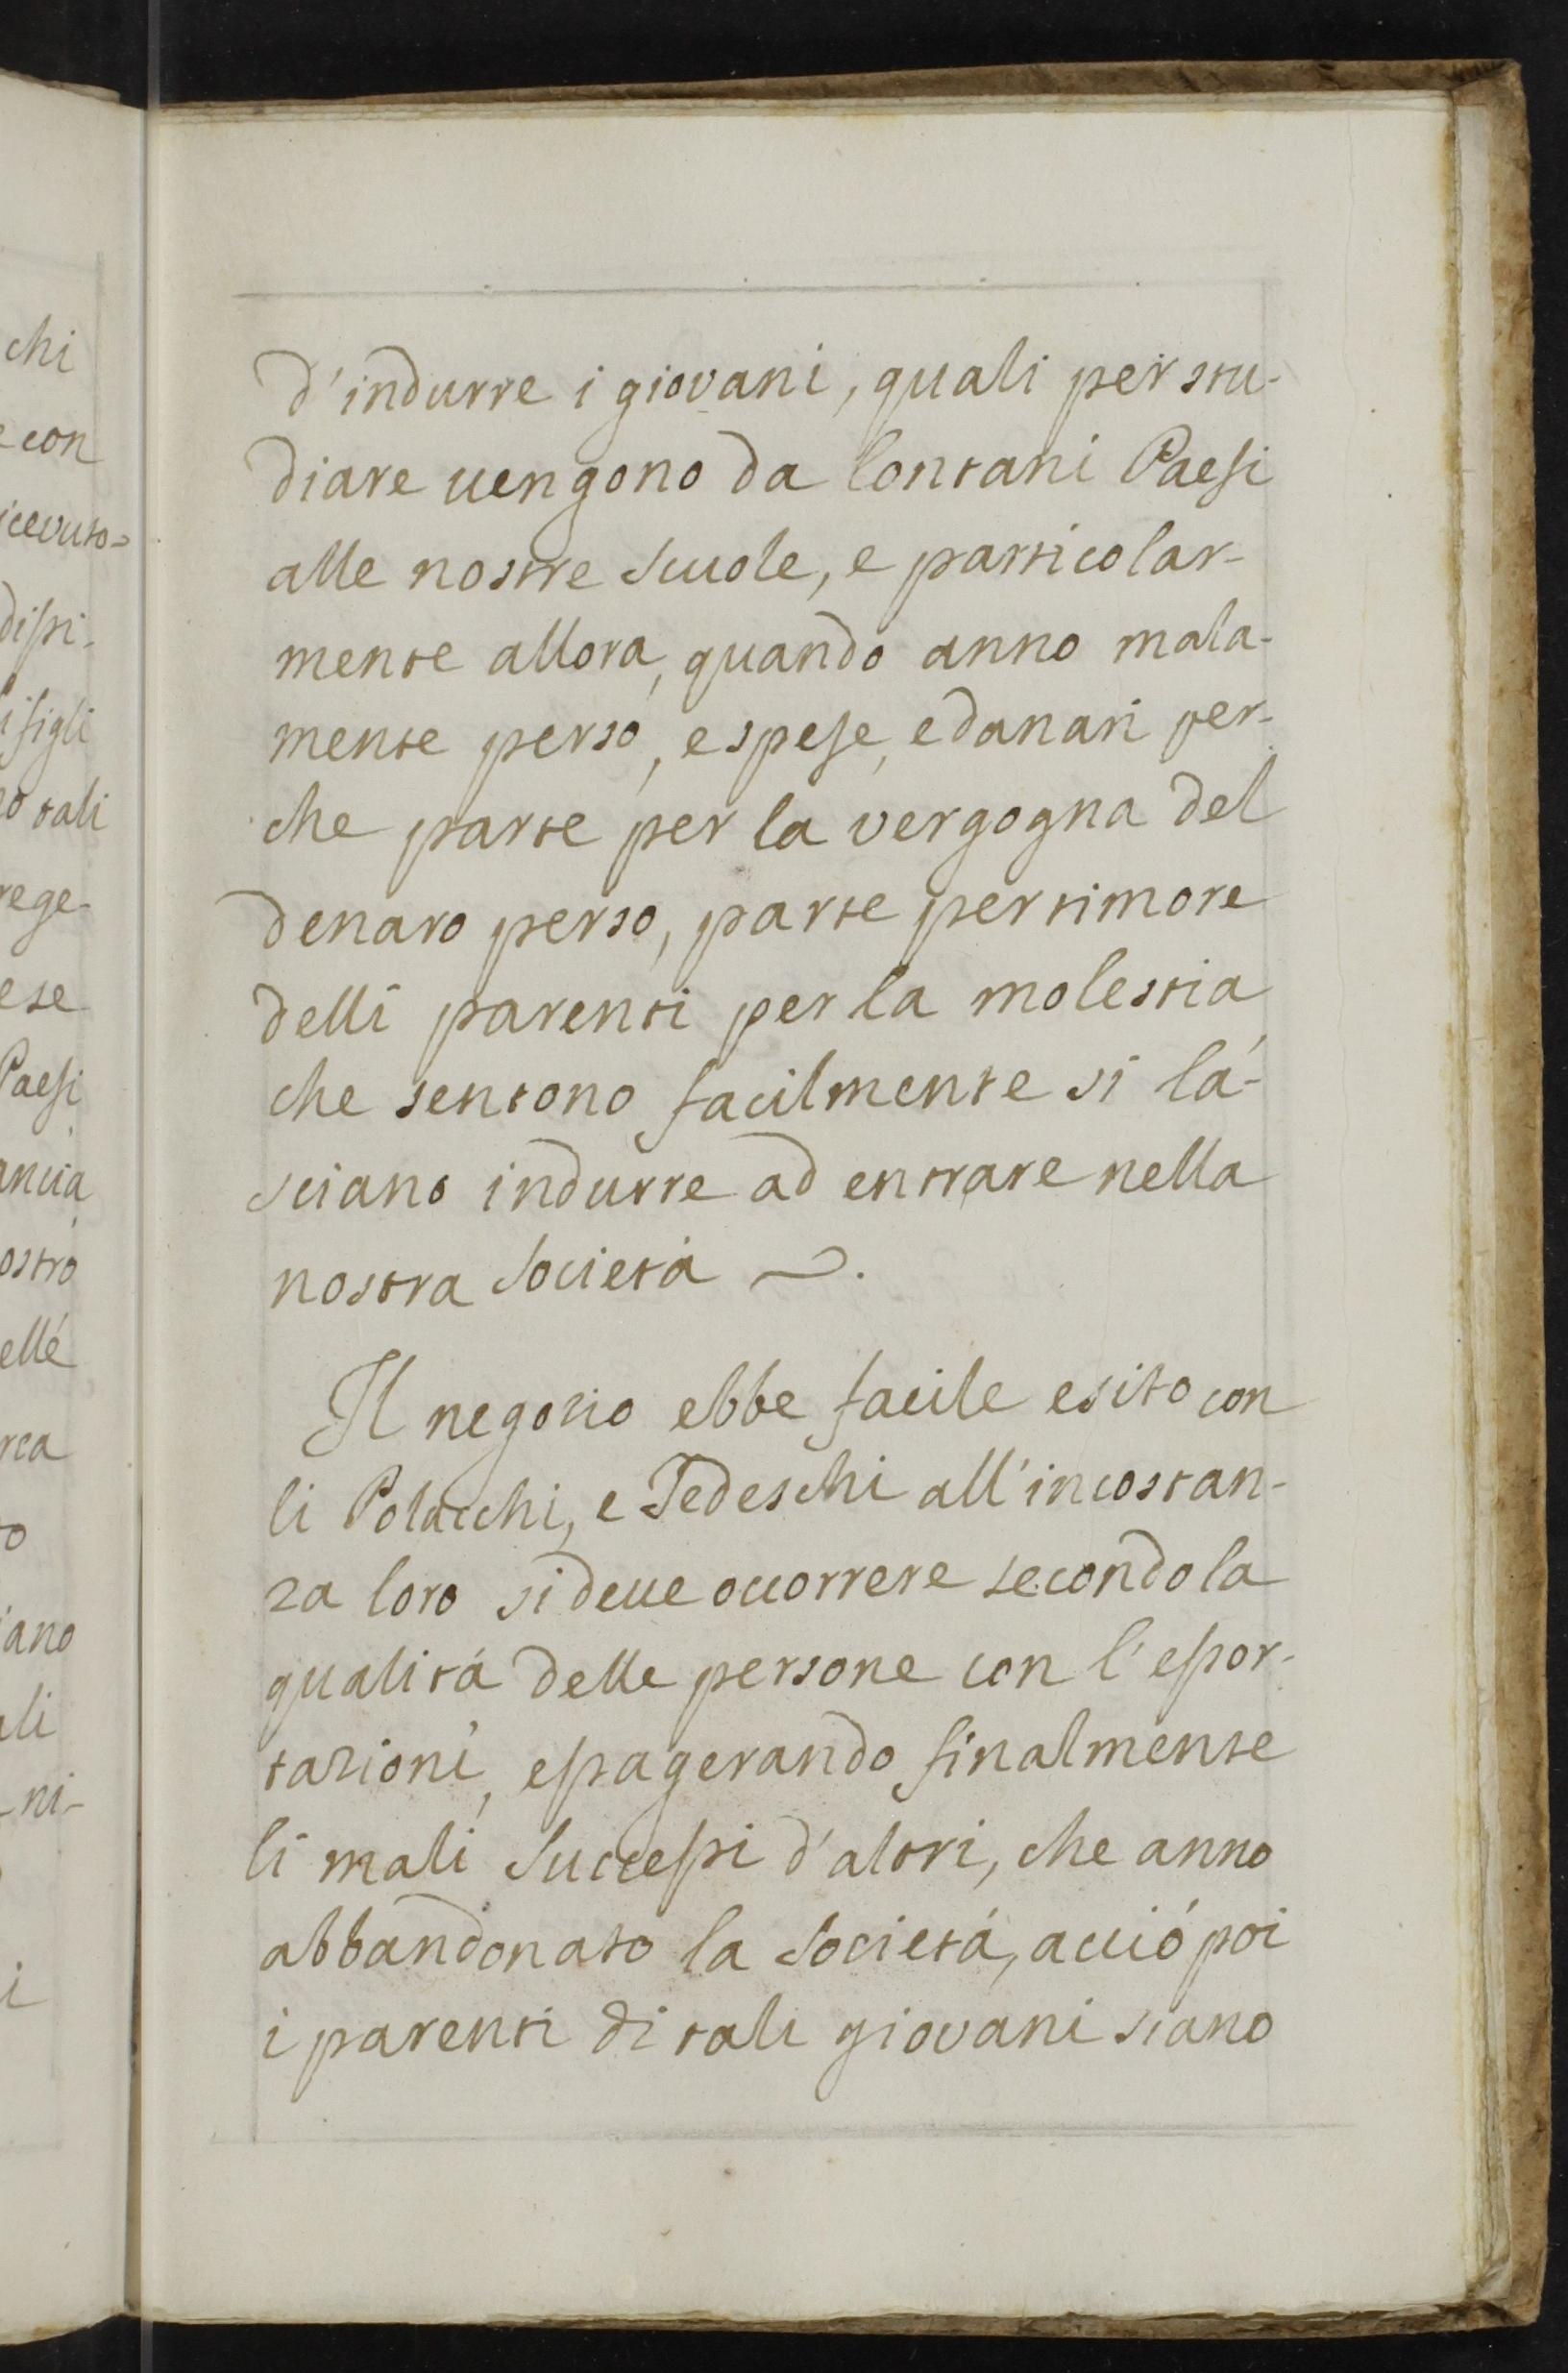 chi
e con
icevuto=
dispi-
i figli
no tali
rege-
ese
Paesi
ancia
ostro
elle
rca
to
iano
ali
ni-
i
d'indurre i giovani, quali per stu-
diare uengono da lontani Paesi
alle nostre Scuole, e particolar-
mente allora, quando anno mala-
mente perso, e spese, e danari per-
che parte per la vergogna del
denaro perso, parte per timore
delli parenti per la molestia,
che sentono facilmente si la-
sciano indurre ad entrare nella
nostra Società ~.
Il negozio ebbe facile esito con
li Polacchi, e Tedeschi all'incostan-
za loro si deue occorrere secondo la
qualitá delle persone con l'essor-
tazioni, essagerando finalmente
li mali Successi d'altri, che anno
abbandonato la Societá, acció poi
i parenti di tali giovani siano